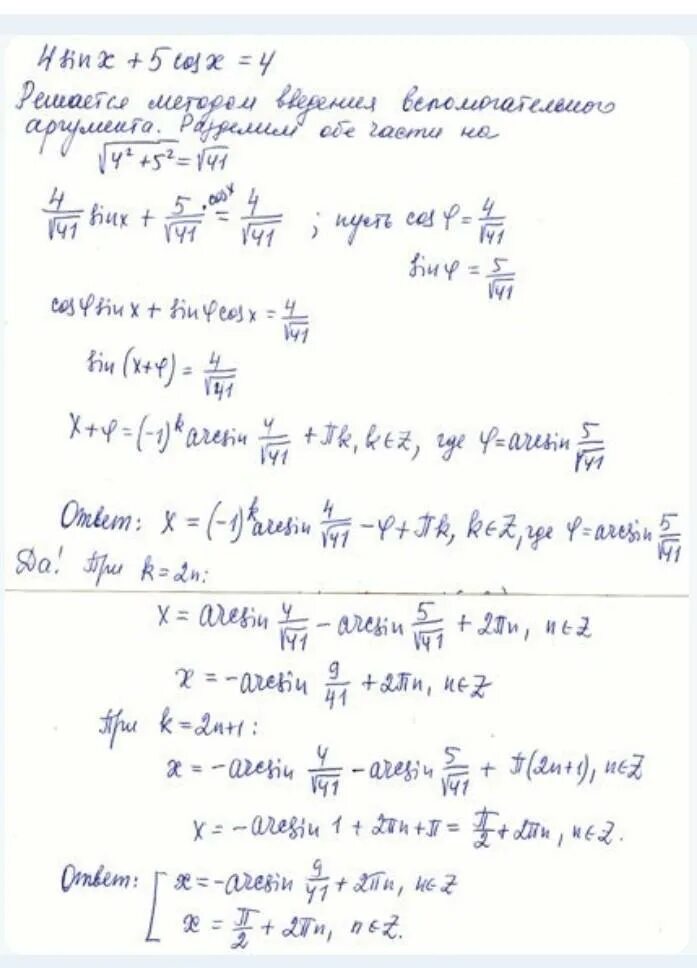 4 sin x + 5 cos x = 4
Решается методом введения вспомогательного
аргумента. Разделим обе части на
√(4² + 5²) = √41
4/√41 sin x + 5/√41 · cos x = 4/√41 ; пусть cos φ = 4/√41
sin φ = 5/√41
cos φ sin x + sin φ cos x = 4/√41
sin (x+φ) = 4/√41
x+φ = (-1)^k arcsin 4/√41 + πk, k∈Z, где φ = arcsin 5/√41
Ответ: x = (-1)^k arcsin 4/√41 - φ + πk, k∈Z, где φ = arcsin 5/√41
Да! При k = 2n:
x = arcsin 4/√41 - arcsin 5/√41 + 2πn, n∈Z
x = -arcsin 9/41 + 2πn, n∈Z
При k = 2n+1:
x = -arcsin 4/√41 - arcsin 5/√41 + π(2n+1), n∈Z
x = -arcsin 1 + 2πn + π = π/2 + 2πn, n∈Z.
Ответ: [ x = -arcsin 9/41 + 2πn, n∈Z
x = π/2 + 2πn, n∈Z.